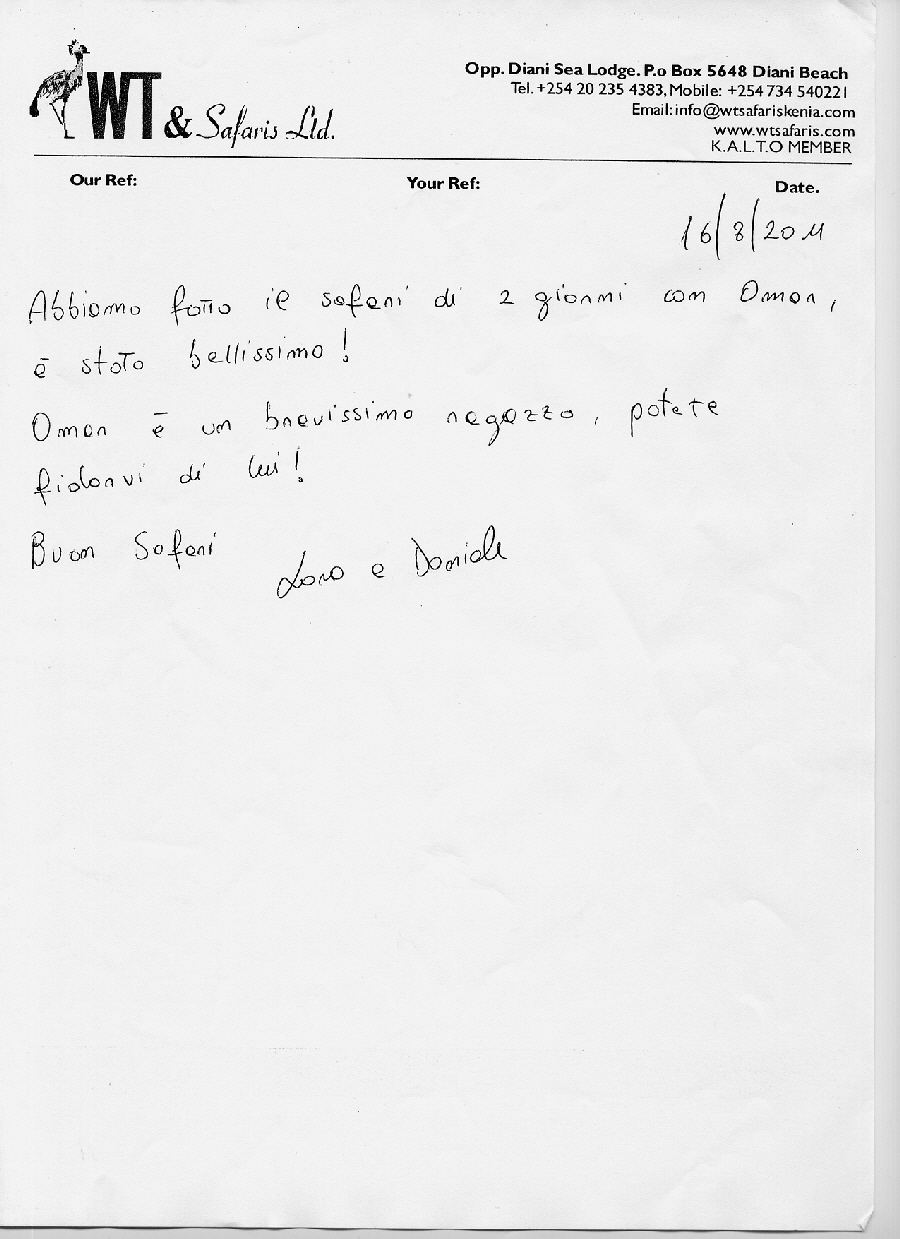 WT & Safaris Ltd.
Opp. Diani Sea Lodge. P.o Box 5648 Diani Beach
Tel. +254 20 235 4383, Mobile: +254 734 540221
Email: info@wtsafariskenia.com
www.wtsafaris.com
K.A.L.T.O MEMBER
Our Ref: Your Ref: Date.
16/8/2011
Abbiamo fatto il safari di 2 giorni con Omar,
è stato bellissimo!
Omar è un bravissimo ragazzo, potete
fidarvi di lui!
Buon Safari
Lara e Daniele